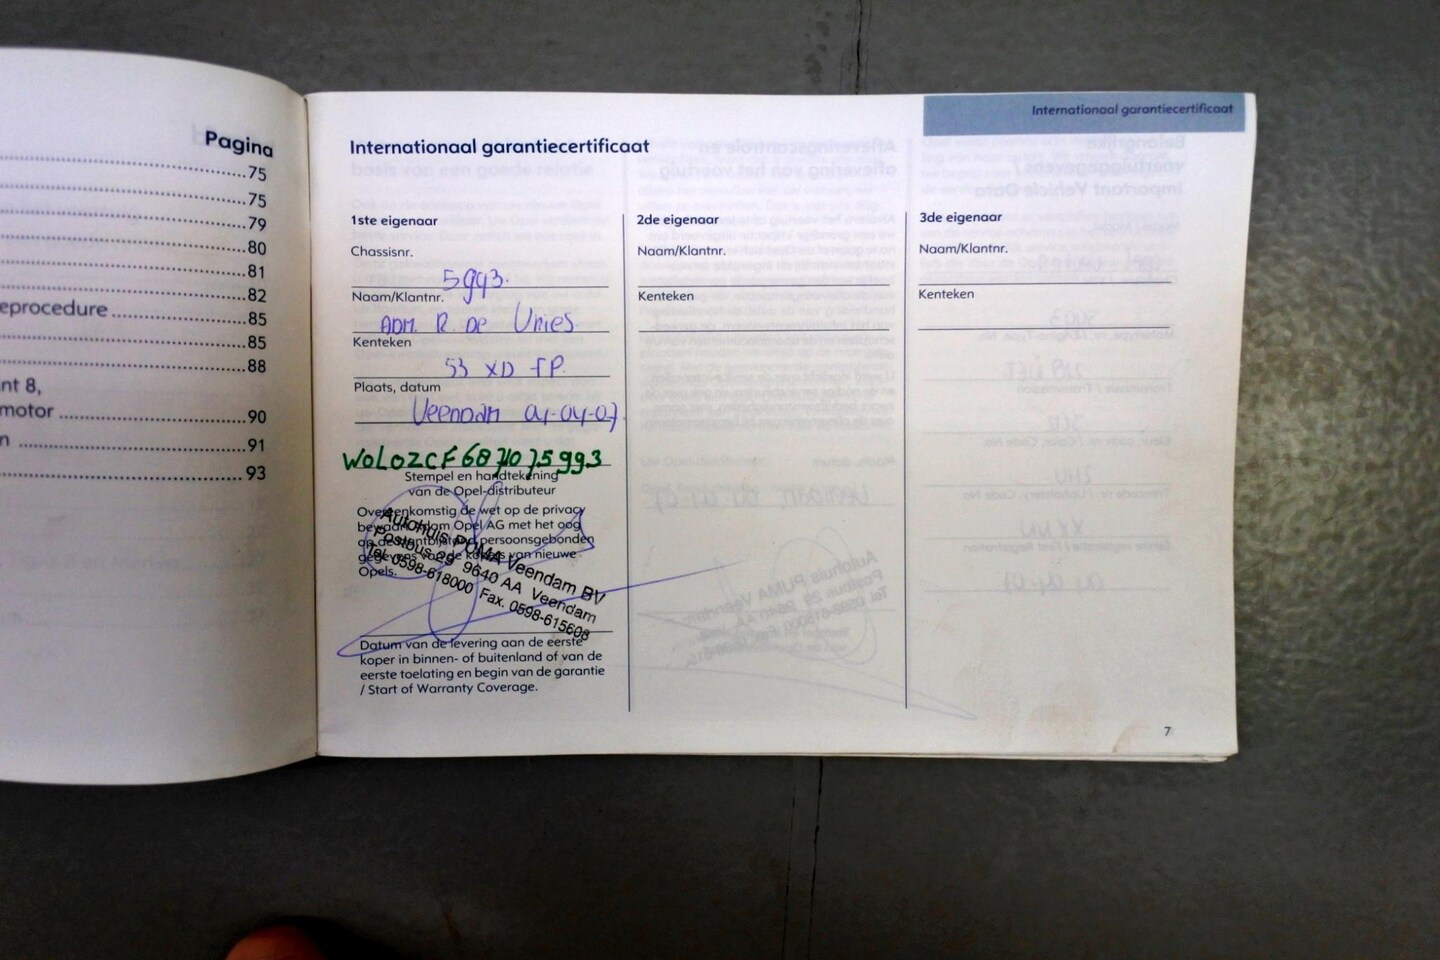 Pagina
75
75
79
80
81
82
eprocedure 85
85
88
nt 8,
motor 90
n 91
93
Internationaal garantiecertificaat
Internationaal garantiecertificaat
1ste eigenaar
Chassisnr.
5993.
Naam/Klantnr.
ADM. R. de Vries
Kenteken
53 XD TP.
Plaats, datum
Veendam 04-04-07.
W0L0ZCF6871075993
Stempel en handtekening
van de Opel-distributeur
Overeenkomstig de wet op de privacy
bewaart Adam Opel AG met het oog
persoonsgebonden
gegevens van de kopers van nieuwe
Opels.
Autohuis PUMA Veendam BV
Postbus 29 9640 AA Veendam
Tel. 0598-618000 Fax. 0598-615608
Datum van de levering aan de eerste
koper in binnen- of buitenland of van de
eerste toelating en begin van de garantie
/ Start of Warranty Coverage.
2de eigenaar
Naam/Klantnr.
Kenteken
3de eigenaar
Naam/Klantnr.
Kenteken
7